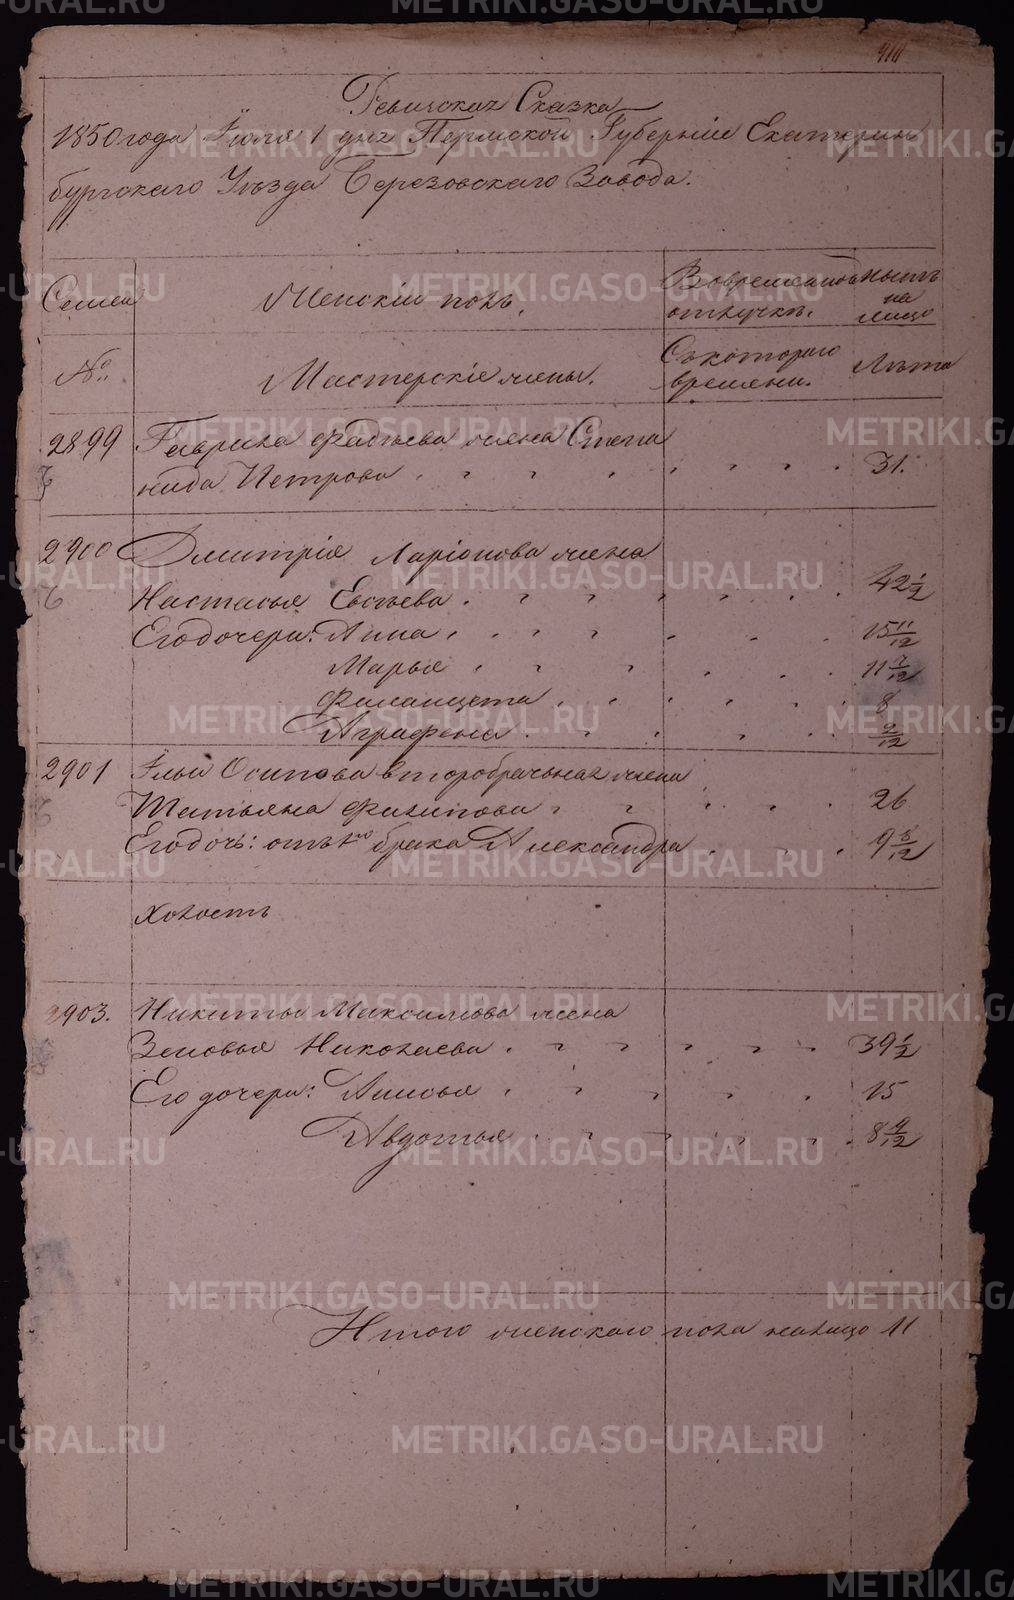 Ревизская Сказка
1850 года Июля 1 дня Пермской Губернiи Екатерин
бургскаго Уѣзда Березовскаго Завода.
Семьи
Женскiй полъ.
Во временной
отлучкѣ.
Нынѣ
на
лицо
№.
Мастерскiе жены.
Съ котораго
времени.
Лѣта
2899
Гаврила Фадѣева жена Степа
нида Петрова 31.
2900
Дмитрiя Ларiонова жена
Настасья Евсѣева 42 1/2
Его дочери: Анна 15 11/12
Марья 11 7/12
8
Аграфена 9/12
2901
Ильи Осипова второбрачная жена
Татьяна Филипова 26
Его дочь: отъ 1го брака Александра 9 8/12
Холостъ
2903.
Никиты Максимова жена
Зеновья Николаева 39 1/2
Его дочери: Анисья 15
Авдотья 8 9/12
Итого женскаго пола налицо 11
METRIKI.GASO-URAL.RU